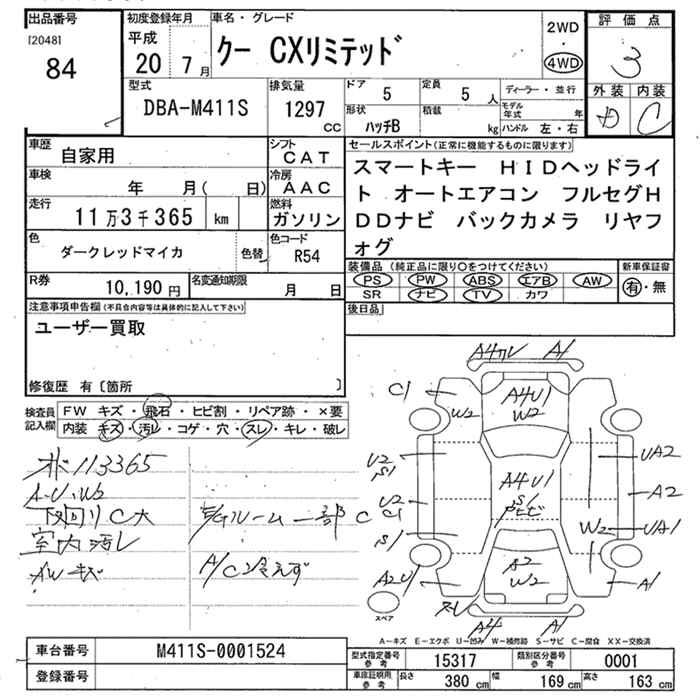 出品番号
[2048]
84
初度登録年月
平成
20 7月
車名・グレード
クー CXリミテッド
2WD
・
4WD
評価点
3
外装 内装
D C
型式
DBA-M411S
排気量
1297
CC
ドア
5
定員
5 人
形状
ハッチB
積載
kg
ディーラー・並行
モデル
年式 年
ハンドル 左・右
車歴
自家用
シフト
CAT
車検
年 月( 日)
冷房
AAC
走行
11万3千365 km
燃料
ガソリン
色
ダークレッドマイカ
色替
色コード
R54
R券
10,190円
名変通知期限
月 日
セールスポイント(正常に機能するものに限ります)
スマートキー HIDヘッドライ
ト オートエアコン フルセグH
DDナビ バックカメラ リヤフ
ォグ
装備品 (純正品に限り○をつけてください)
PS PW ABS エアB AW
SR ナビ TV カワ
新車保証書
有・無
後日品
注意事項申告欄(不具合内容等は具体的に記入して下さい)
ユーザー買取
修復歴 有〔箇所 〕
検査員
記入欄
FW キズ・飛石・ヒビ割・リペア跡・×要
内装 キズ・汚レ・コゲ・穴・スレ・キレ・破レ
113365
A-U,W2
下回りC大
室内汚レ
AWキズ
ルーム一部C
A/C冷えず
A4 カレ A1
C1
W2
A4U1
W2
U2
S1
U2
C1
S1
A2U1
A4U1
S1
UA2
A2
W2
UA1
A1
A2
W2
スレ
A4
A1
スペア
A-キズ E-エクボ U-凹み W-補修跡 S-サビ C-腐食 XX-交換済
車台番号
M411S-0001524
登録番号
型式指定番号
参考
15317
類別区分番号
参考
0001
車庫証明用
参考
長さ
380 cm
幅
169 cm
高さ
163 cm